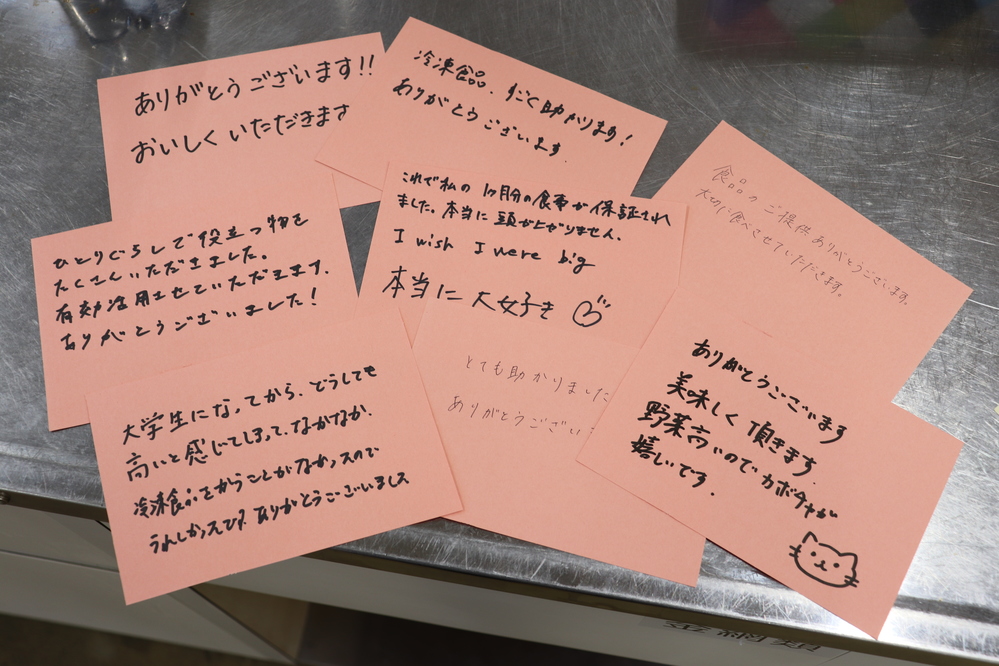 ありがとうございます!!
おいしくいただきます
冷凍食品、すごく助かります!
ありがとうございます.
食品のご提供ありがとうございます。
大切に食べさせていただきます。
ひとりぐらしで役立つ物を
たくさんいただきました。
有効活用させていただきます.
ありがとうございました!
これで私の1ヶ月分の食事が保証され
ました。本当に頭が上がりません.
I wish I were big
本当に大好き
大学生になってから、どうしても
高いと感じてしまって、なかなか、
冷凍食品をかうことがなかったので
うれしかったです. ありがとうございました
とても助かりました
ありがとうござい
ありがとうございます
美味しく頂きます.
野菜高いのでカボチャが
嬉しいです.